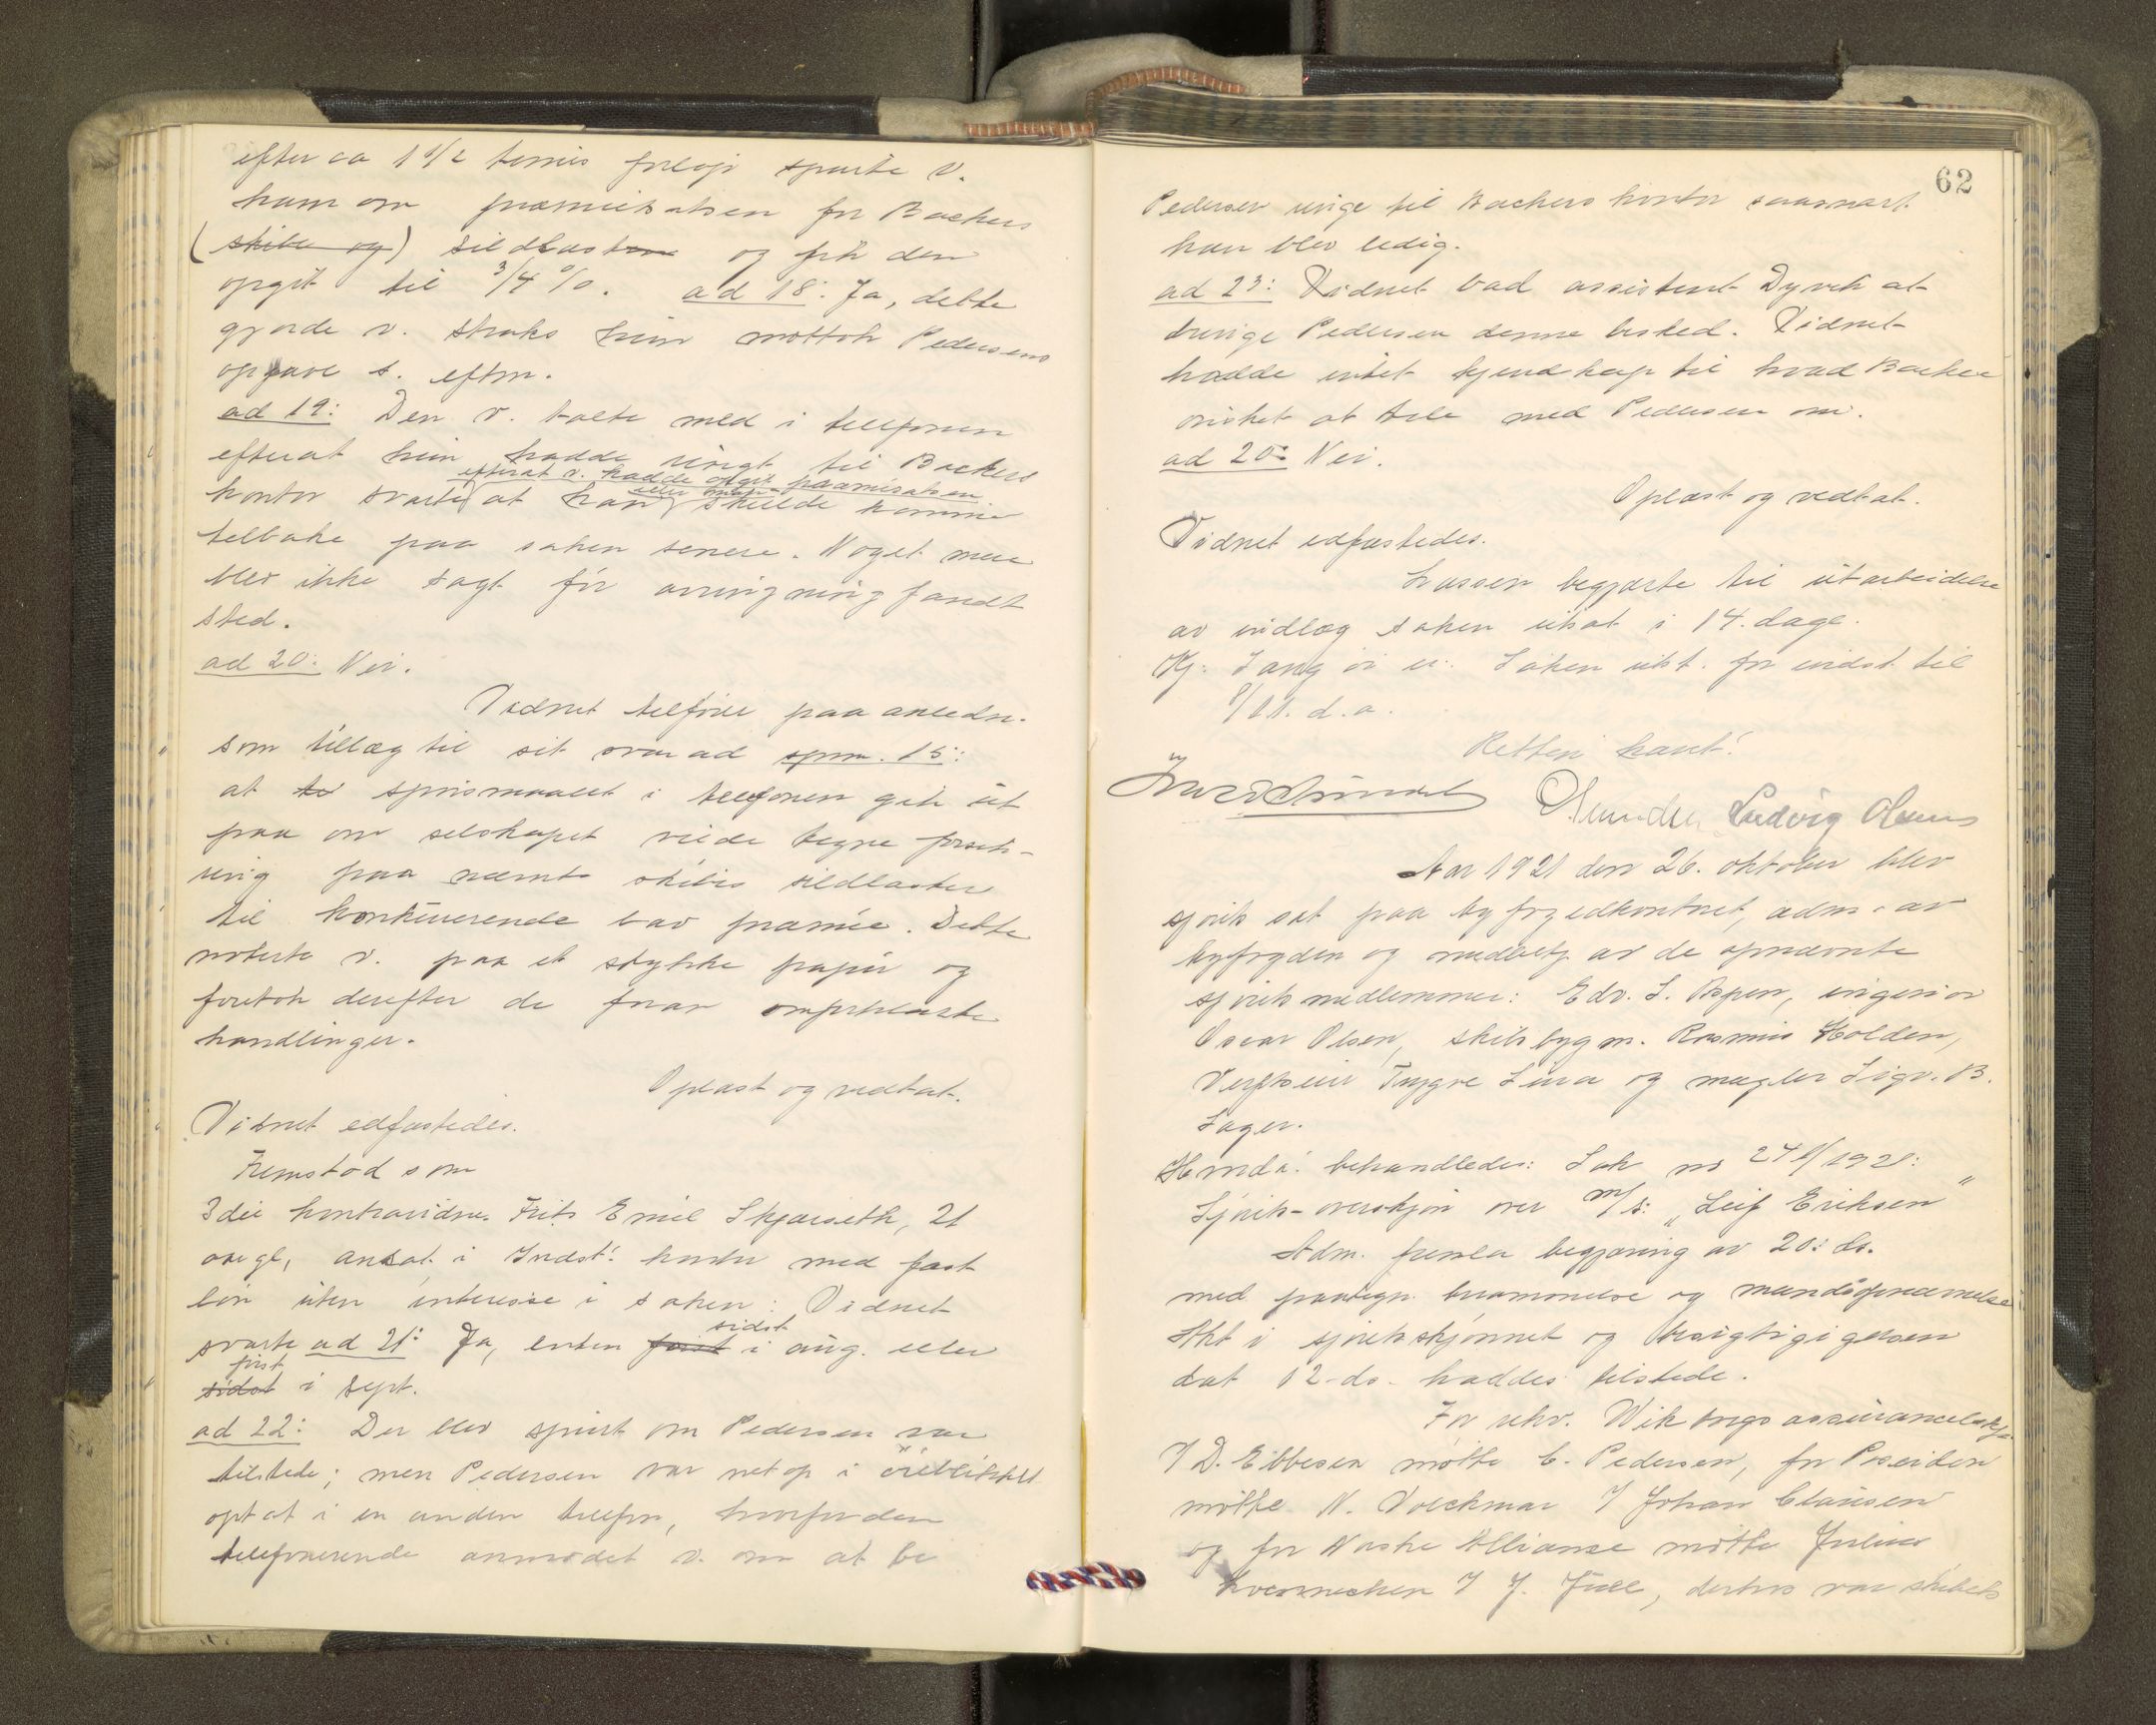 efter ca 1 1/2 times forløp spurte v.
ham om præmiesatsen for Backers
(skibe og) sildlasten og fik den
opgit til 3/4 %. ad 18: Ja, dette
gjorde v. straks hun mottok Pedersens
opgave s. eftm.
ad 19: Den v. talte med i telefonen
efterat hun hadde ringt til Backers
efterat v. hadde opgit præmisatsen
kontor svarte at han skulde komme
tilbake paa saken senere. Noget mere
blev ikke sagt før avringning fandt
sted.
ad 20: Nei.
Vidnet tilføiet paa anledn.
som tillæg til sit svar ad spm. 15:
at spørsmaalet i telefonen gik ut
paa om selskapet vilde tegne forsik-
ring paa nævnte skibes sildlaster
til konkurrerende lav præmie. Dette
noterte v. paa et stykke papir og
foretok derefter de foran omforklarte
handlinger.
Oplæst og vedtat.
Vidnet edfæstedes.
Fremstod som
3die kontravidne Frits Emil Skjæiseth, 21
aar gl, ansat i Indst! kontor med fast
løn uten interesse i saken: Vidnet
sidst
svarte ad 21: Ja, enten først i aug. eller
først
sidst i sept.
ad 22: Der blev spurt om Pedersen var
tilstede; men Pedersen var netop i øieblikket
optat i en anden telefon, hvorfor den
telefonerende anmodet v. om at be
62
Pedersen ringe til Backers kontor saasnart
han blev ledig.
ad 23: Vidnet bad assistent Dyvik at
bringe Pedersen denne besked. Vidnet
hadde intet kjendskap til hvad Backer
ønsket at tale med Pedersen om.
ad 20: Nei.
Oplæst og vedtat.
Vidnet edfæstedes.
Lassen begjærte til utarbeidelse
av indlæg saken utsat i 14. dage.
Kj: Saken uts. for indst. til
8/11. d.a.
Retten hævet!
Ludvig
Aar 1921 den 26. oktober blev
sjøret sat paa byfogedkontoret, adm. av
byfogden og medbetj. av de opnævnte
sjøretsmedlemmer: Edv. S. Aspen, ingeniør
Oscar Olsen, skibsbygm. Rasmus Holden,
Verftseier Trygve Liusa og megler Sigv. B.
Lager.
Hvorda: behandledes: Sak no 24 /1921:
Sjørets-overskjøn over m/s: "Leif Eriksen"
Adm. fremla begjæring av 20: ds.
med paategn. berammelse og mandsopnævnelse
Akt i sjøretsskjønnet og besigtigigelsen
dat 12. ds. haddes tilstede.
For rekv. Wikings assuranceselsk.
v/ D. Ebbesen møtte C. Pedersen, for Poseidon
møtte N. Volckmar v/ Johan Clausen
og for Norske Alliance møtte Julius
v/ J. Juell, derhos var skibets